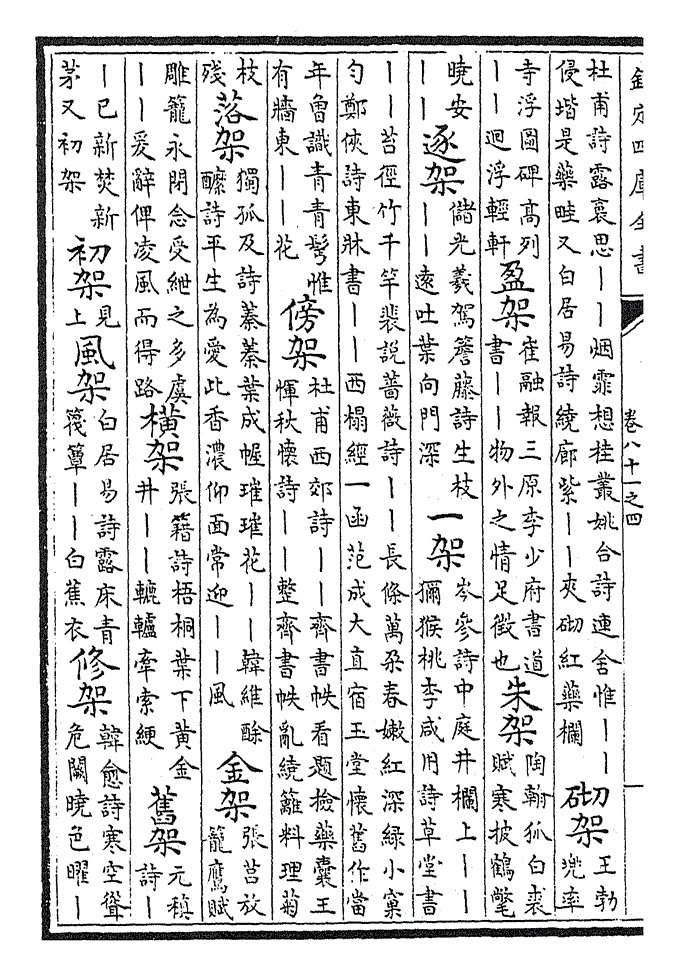 欽定四庫全書
卷八十一之四
杜甫詩露裛思丨丨烟霏想桂叢姚合詩連舍惟丨丨侵堦是藥畦又白居易詩繞廊紫丨丨夾砌紅藥欄 砌架 王勃兜率
寺浮圖碑髙列丨丨迴浮輕軒 盈架 崔融報三原李少府書道書丨丨物外之情足徵也 朱架 陶翰狐白裘賦寒披鶴氅
曉安丨丨 逐架 儲光羲駕簷藤詩生枝丨丨逺吐葉向門深 一架 岑參詩中庭井欄上丨丨獼猴桃李咸用詩草堂書
丨丨苔徑竹千竿裴說薔薇詩丨丨長條萬朶春嫩紅深緑小窠匀鄭俠詩東牀書丨丨西榻經一函范成大直宿玉堂懷舊作當
年魯識青青髩惟有牆東丨丨花 傍架 杜甫西郊詩丨丨齊書帙看題撿藥囊王惲秋懷詩丨丨整齊書帙亂繞籬料理菊
枝殘 落架 獨孤及詩蓁蓁葉成幄璀璀花丨丨韓維酴醾詩平生為愛此香濃仰面常迎丨丨風 金架 張莒放籠鷹賦
雕籠永閉念受紲之多虞丨丨爰辭俾凌風而得路 橫架 張籍詩梧桐葉下黃金井丨丨轆轤牽索綆 舊架 元稹詩丨
丨已新焚新茅又初架 初架 見上 風架 白居易詩露床青篾簟丨丨白蕉衣 修架 韓愈詩寒空聳危闕曉色曜丨